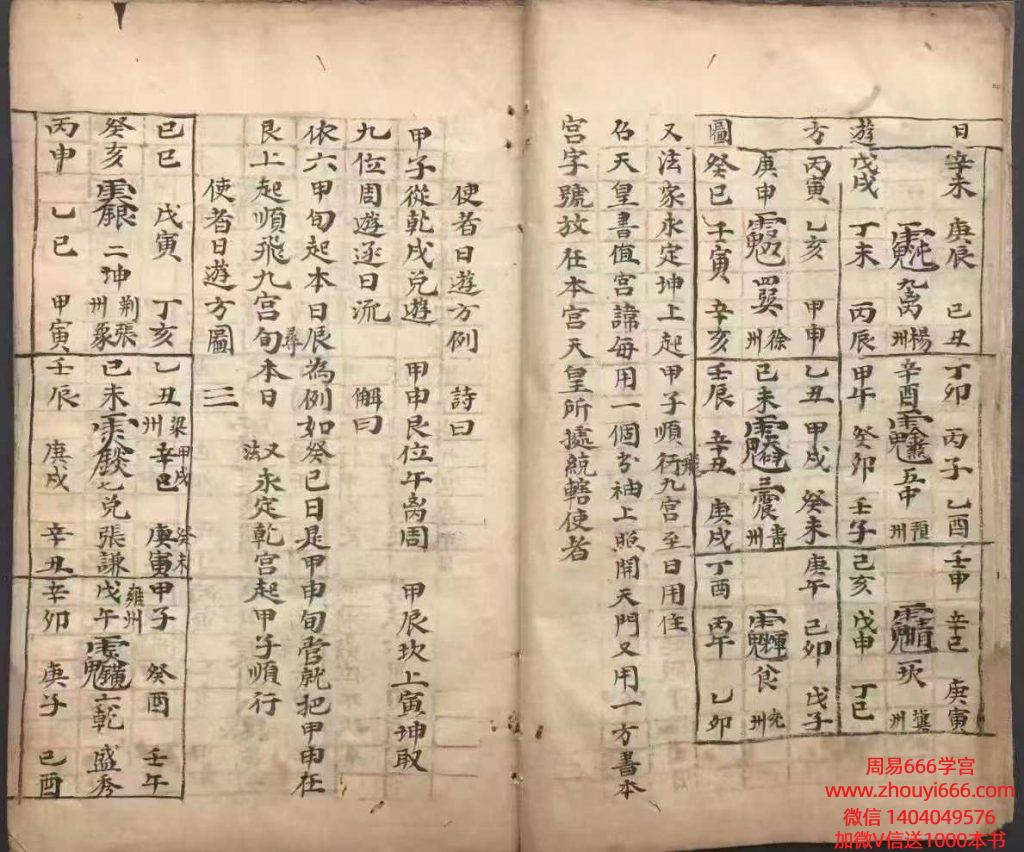 日 辛未 庚辰 己丑 丁卯 丙子 乙酉 壬申 辛巳 庚寅
九离 楊州 辛酉 五中 預州 一坎 冀州
遊 戊戌 丁未 丙辰 甲午 癸卯 壬子 己亥 戊申 丁巳
方 丙寅 乙亥 甲申 乙丑 甲戌 癸未 庚午 己卯 戊子
庚申 四巽 徐州 己未 三震 青州 食 兖州
圖 癸巳 壬寅 辛亥 壬辰 辛丑 庚戌 丁酉 丙午 乙卯
又法家永定坤上起甲子順行九宫至日用住
召天皇書值宫諱每用一個于袖上照開天門又用一方書本
宫字號放在本宫天皇所攝統轄使者
使者日遊方例 詩曰
甲子從乾戌兑遊 甲申艮位午离周 甲辰坎上寅坤取
九位周遊逐日流 解曰
依六甲旬起本日辰為例如癸巳日是甲申旬管就把甲申在
艮上起順飛九宫旬尋本日 又法永定乾宫起甲子順行
使者日遊方圖 三
己巳 戊寅 丁亥 乙丑 梁州 甲戌 辛巳 癸未 庚寅 甲子 雍州 癸酉 壬午
癸亥 二坤 荆州 張象 己未 七兑 張謙 戊午 六乾 盛秀
丙申 乙巳 甲寅 壬辰 庚戌 辛丑 辛卯 庚子 己酉
周易666学宫
www.zhouyi666.com
微信 1404049576
加微V信送1000本书